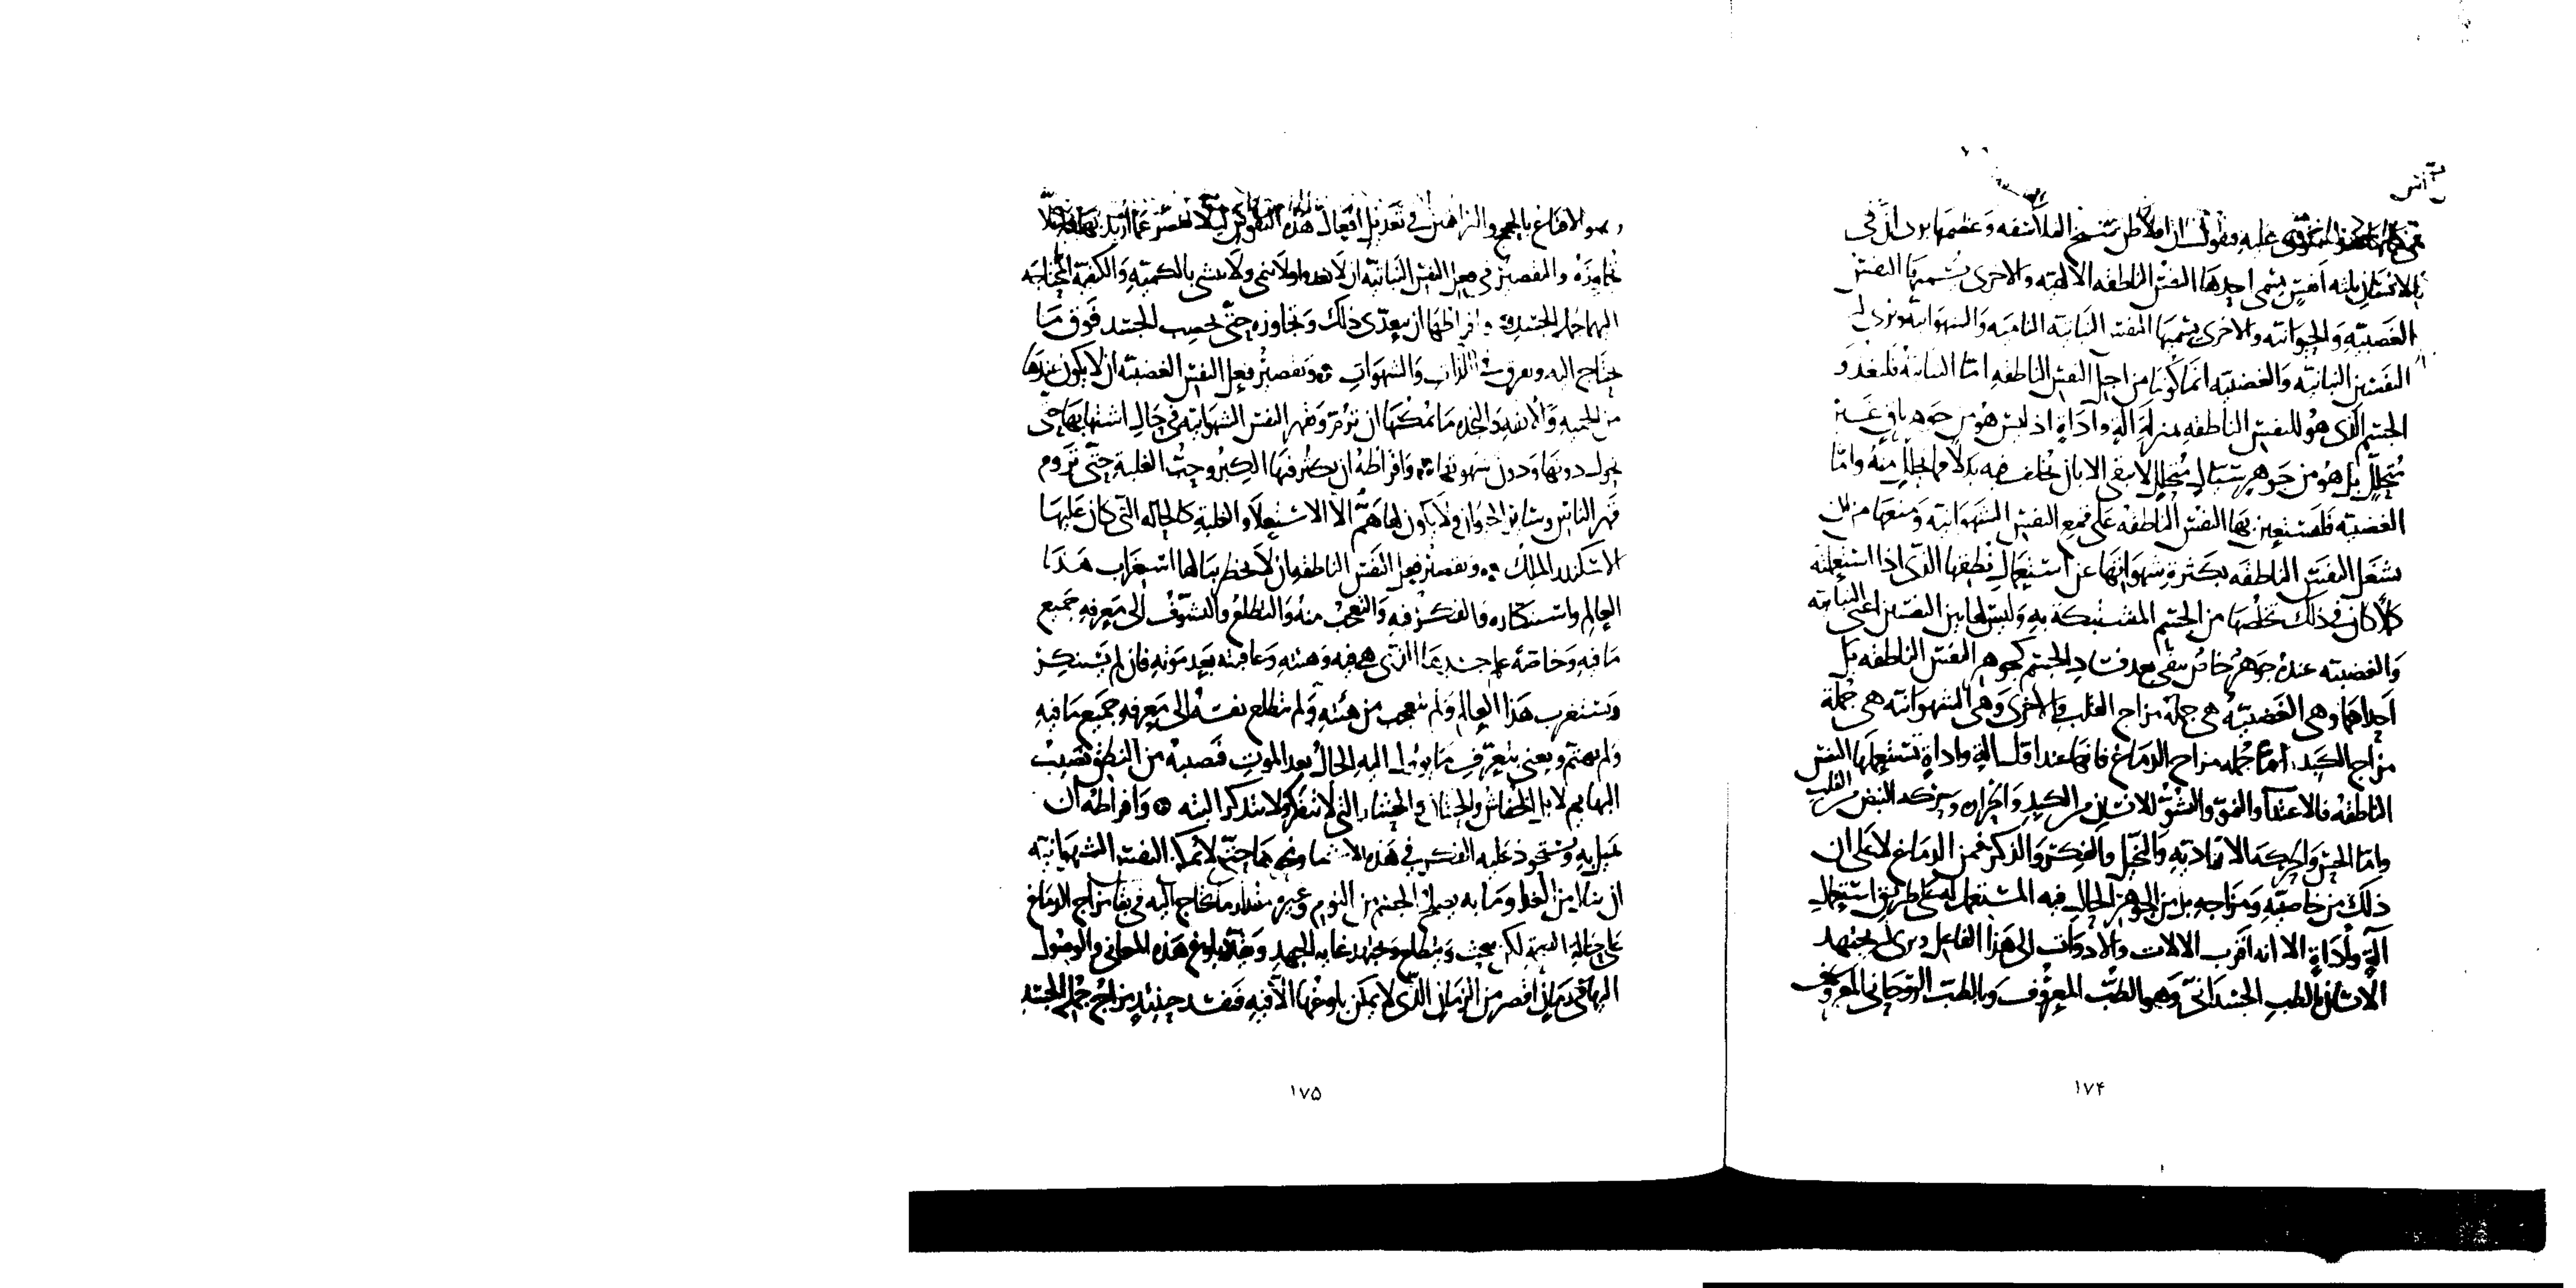 عليه فنقول ان افلاطن شيخ الفلاسفه وعظيمها يرى ان في
الانسان ثلثه انفس يسمى احدها النفس الناطقه الالهيه والاخرى يسميها النفس
الغضبيه والحيوانيه والاخرى يسميها النفس النباتيه الناميه والشهوانيه ويرى ان
النفسين النباتيه والغضبيه انما كونتا من اجل النفس الناطقه اما النباتيه فلتغذو
الجسم الذى هو للنفس الناطقه بمنزلة آلة واداة اذ ليس هو من جوهر باق غير
متحلل بل هو من جوهر سيال متحلل لا يبقى الا بان يخلف فيه بدلا مما تحلل منه واما
الغضبيه فلتستعين بها النفس الناطقه على قمع النفس الشهوانيه ومنعها من ان
تشغل النفس الناطقه بكثرة شهواتها عن استعمال نطقها الذى اذا استعملته
كملا كان في ذلك تخلصها من الجسم المشتبكة به وليس لهاتين النفسين اعنى النباتيه
والغضبيه عنده جوهر خاص يبقى بعد فساد الجسم كجوهر النفس الناطقه بل
احداهما وهى الغضبيه هى جملة مزاج القلب والاخرى وهى الشهوانيه هى جملة
مزاج الكبد، اما جمله مزاج الدماغ فانها عنده اول آلة واداة تستعملها النفس
الناطقه فالاغتذآ والنمو والنشوْ للانسان من الكبد والحراره وحركه النبض من القلب
واما الحس والحركه الاراديه والتخيل والفكر والذكر فمن الدماغ لا على ان
ذلك من خاصيته ومزاجه بل من الجوهر الحال فيه المستعمل له على طريق استعمال
آلة واداة الا انه اقرب الالات والادوات الى هذا الفاعل ويرى ان يجتهد
الانسان بالطب الجسدانى وهو الطب المعروف وبالطب الروحانى المعروف
وهو الاقناع بالحجج والبراهين في تعديل افعال هذه النفوس ليلا تقصر عما اريد بها وليلا
تجاوزه والتقصير في فعل النفس النباتيه ان لا تغذو ولا تنمى ولا تنشى بالكميّه والكيفيّه المحتاجه
اليها جمله الجسد وافراطها ان يتعدّى ذلك وتجاوزه حتى يخصب الجسد فوق ما
يحتاج اليه ويغرق في اللذات والشهوات وتقصير فعل النفس الغضبيّه ان لا يكون عندها
من الحميه والانفه والنجده ما يمكنها ان تزم وتقهر النفس الشهوانيه في حال اشتهايها حتى
تحول دونها ودون شهواتها وافراطه ان يكثر فيها الكِبْر وحبّ الغلبة حتى تروم
قهر الناس وساير الحيوان ولا يكون لها هَمّ الا الاستعلآ والغلبة كالحاله التى كان عليها
الاسكندر الملك وتقصير فعل النفس الناطقه ان لا يخطر ببالها استغراب هذا
العالم واستكباره والفكر فيه والتعجب منه والتطلع والتشوّف الى معرفه جميع
ما فيه وخاصّة علم جسدها الذى هى فيه وهيئته وعاقبته بعد موته فان لم يستكبر
ويستغرب هذا العالم ولم يتعجب من هيئته ولم تتطلع نفسه الى معرفه جميع ما فيه
ولم يهتم ويعنى بتعرّف ما يؤول اليه الحال بعد الموت فنصيبه من النطق نصيب
البهايم لا بل الخفاش والحيتان والخشار التى لا تتفكر ولا تتذكر البته وافراطه ان
يميل به ويستحوذ عليه الفكر في هذه الاشيا ونحوها حتى لا يمكن النفس الشهوانيّه
ان تنال من الغذا وما به يصلح الجسم من النوم وغيره مقدار ما يحتاج اليه في بقا مزاج الدماغ
على حاله الصحه لكن يبحث ويتطلع ويجتهد غايه الجهد ويقدر بلوغ هذه المعانى والوصول
اليها في زمان اقصر من الزمان الذى لا يمكن بلوغها الا فيه فيفسد حينئذ مزاج جمله الجسد
١٧۴
١٧۵